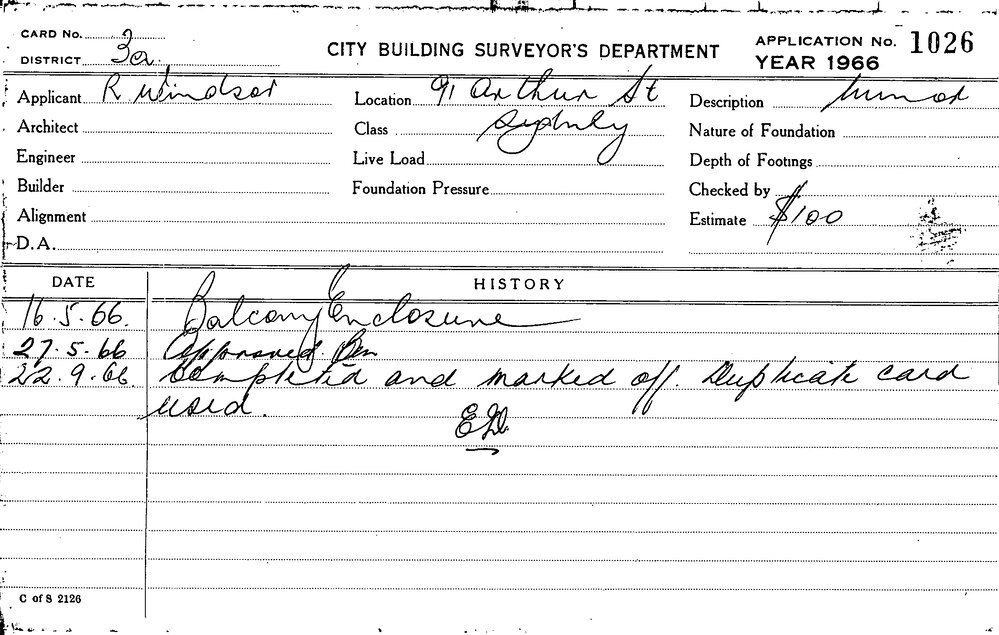 CARD No.
DISTRICT 3a.
CITY BUILDING SURVEYOR'S DEPARTMENT
APPLICATION No. 1026
YEAR 1966
Applicant R Windsor
Location 91 Arthur St
Description Minor
Architect
Class Sydney
Nature of Foundation
Engineer
Live Load
Depth of Footings
Builder
Foundation Pressure
Checked by
Alignment
Estimate $100
D.A.
DATE HISTORY
16.5.66. Balcony Enclosure
27.5.66 Approved
22.9.66. Completed and marked off. Duplicate card
used.
C of S 2126